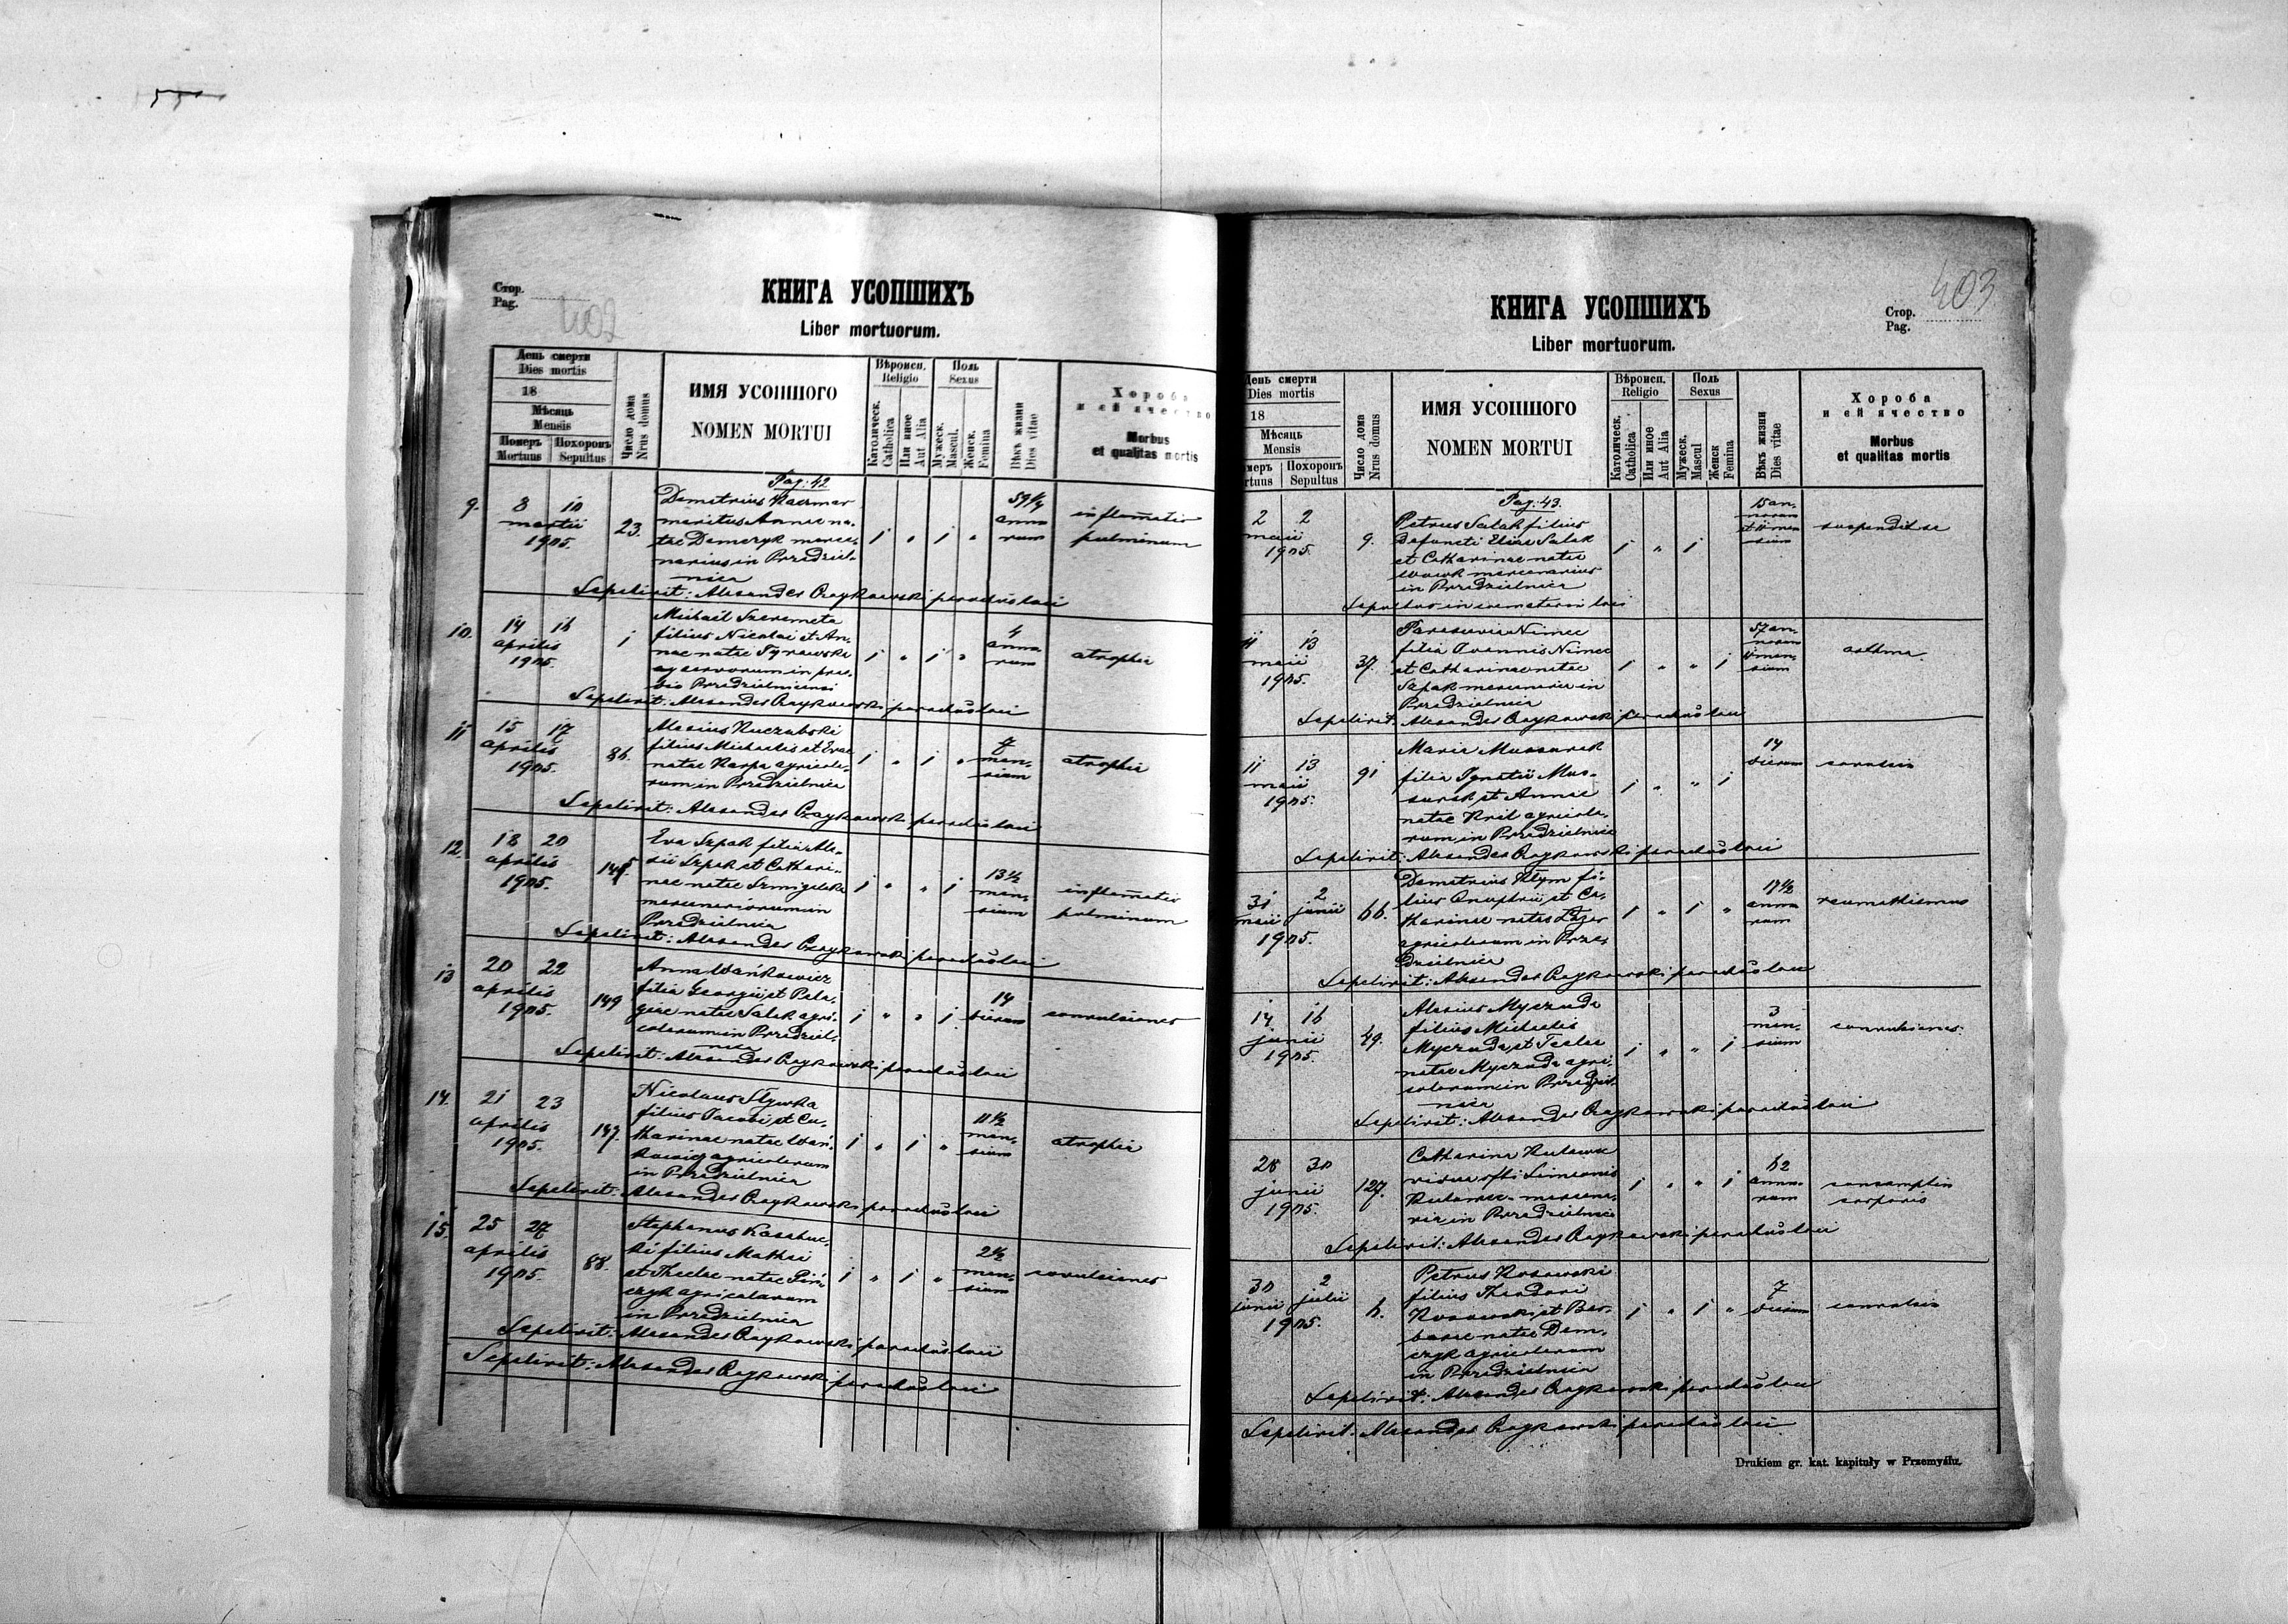 Стор.
Pag. 402
КНИГА УСОПШИХЪ
Liber mortuorum.
День смерти
Dies mortis
18
Мѣсяць
Mensis
Померъ Похоронъ
Mortuus Sepultus
Число дома
Nrus domus
ИМЯ УСОПШОГО
NOMEN MORTUI
Вѣроисп.
Religio
Католическ.
Catholica
Или иное
Aut Alia
Поль
Sexus
Мужеск.
Mascul.
Женск.
Femina
Вѣкъ жизни
Dies vitae
Хороба
и ей ячество
Morbus
et qualitas mortis
Pag: 42
9. 8 10
martii
1905.
23.
Demetrius Kaczmar
maritus Annae na-
tae Demczyk merce-
narius in Przedziel-
nica
1 " 1 "
59 1/4
anno
rum
inflamatio
pulminum
Sepelivit: Alexander Czajkowski parochus loci
10. 14 16
aprilis
1905.
1
Michael Szeremeta
filius Nicolai et An-
nae natae Tyrawska
servorum in prae-
dio Przedzielnicensi
1 " 1 "
4
anno
rum
atrophia
Sepelivit: Alexander Czajkowski parochus loci
11 15 17
aprilis
1905.
86.
Alexius Kuczabski
filius Michaelis et Evae
natae Karpa agricola-
rum in Przedzielnica
1 " 1 "
7
men-
sium
atrophia
Sepelivit: Alexander Czajkowski parochus loci
12. 18 20
aprilis
1905.
Eva Szpak filia Ale-
xii Szpak et Cathari-
nae natae Szmigelska
mercenariorum in
Przedzielnica
1 " " 1
13 1/2
men-
sium
inflamatio
pulminum
Sepelivit: Alexander Czajkowski parochus loci
13 20 22
aprilis
1905.
149
Anna Wańkowicz
filia Georgii et Pela-
giae natae Salak agri-
colarum in Przedziel-
nica
1 " " 1
14
dierum
convulsiones
Sepelivit: Alexander Czajkowski parochus loci
14. 21 23
aprilis
1905.
147.
Nicolaus Slywka
filius Jacobi et Ca-
tharinae natae Wań-
kowicz agricolarum
in Przedzielnica
1 " 1 "
11 1/2
men-
sium
atrophia
Sepelivit: Alexander Czajkowski parochus loci
15. 25 27
aprilis
1905.
88.
Stephanus
ki filius Mathei
et Theclae natae
czyk agricolarum
in Przedzielnica
1 " 1 "
2 1/2
men-
sium
convulsiones
Sepelivit: Alexander Czajkowski parochus loci
Sepelivit: Alexander Czajkowski parochus loci
КНИГА УСОПШИХЪ
Liber mortuorum.
Стор.
Pag. 403
День смерти
Dies mortis
18
Мѣсяць
Mensis
меръ Похоронъ
rtuus Sepultus
Число дома
Nrus domus
ИМЯ УСОПШОГО
NOMEN MORTUI
Вѣроисп.
Religio
Католическ.
Catholica
Или иное
Aut Alia
Поль
Sexus
Мужеск.
Mascul
Женск
Femina
Вѣкъ жизни
Dies vitae
Хороба
и ей ячество
Morbus
et qualitas mortis
Pag: 43.
2 2
maii
1905.
9.
Petrus Salak filius
defuncti Eliae Salak
et Catharinae natae
Wowk mercenarius
in Przedzielnica
1 " 1
15 an-
norum
et 11 men
sium
suspendit se
Sepultus in cemeterio loci
11 13
maii
1905.
37.
Parascevia Nimec
filia Joannis Nimec
et Catharinae natae
Szpak mercenaria in
Przedzielnica
1 " " 1
57 an-
norum
men-
sium
asthma
Sepelivit: Alexander Czajkowski parochus loci
11 13
maii
1905.
91
Maria Mussurak
filia Ignatii Mus-
surak et Annae
natae Kril agricola-
rum in Przedzielnica
1 " " 1
14
dierum
convulsio
Sepelivit: Alexander Czajkowski parochus loci
31 2
maii junii
1905.
66.
Demetrius Klym fi-
lius Onuphrii et Ca-
tharinae natae Łazor
agricolarum in Prze-
dzielnica
1 " 1 "
17 1/2
anno
rum
reumathismus
Sepelivit: Alexander Czajkowski parochus loci
14 16
junii
1905.
49.
Alexius Myczuda
filius Michaelis
Myczuda et Teclae
natae Myczuda agri-
colarum in Przedziel-
nica
1 " " 1
3
men-
sium
convulsiones
Sepelivit: Alexander Czajkowski parochus loci
28 30
junii
1905.
127.
Catharina
vidua Simeonis
mercena-
ria in Przedzielnica
1 " " 1
62
anno-
rum
consumptio
corporis
Sepelivit: Alexander Czajkowski parochus loci
30 2
junii julii
1905.
6.
Petrus Kossowski
filius Theodori
Kossowski et Bar-
barae natae Dem-
czyk agricolarum
in Przedzielnica
1 " 1 "
7
dierum
convulsio
Sepelivit: Alexander Czajkowski parochus loci
Sepelivit: Alexander Czajkowski parochus loci
Drukiem gr. kat. kapituły w Przemyślu.